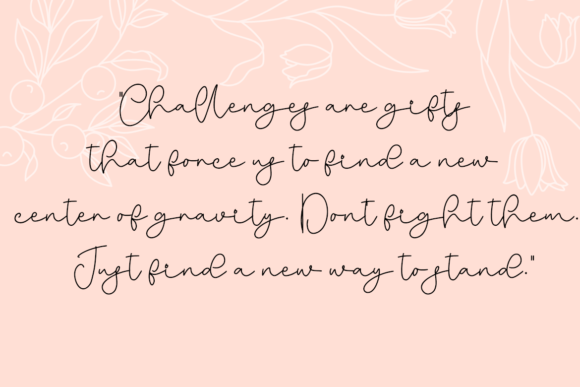 "Challenges are gifts
that force us to find a new
center of gravity. Dont fight them.
Just find a new way to stand."